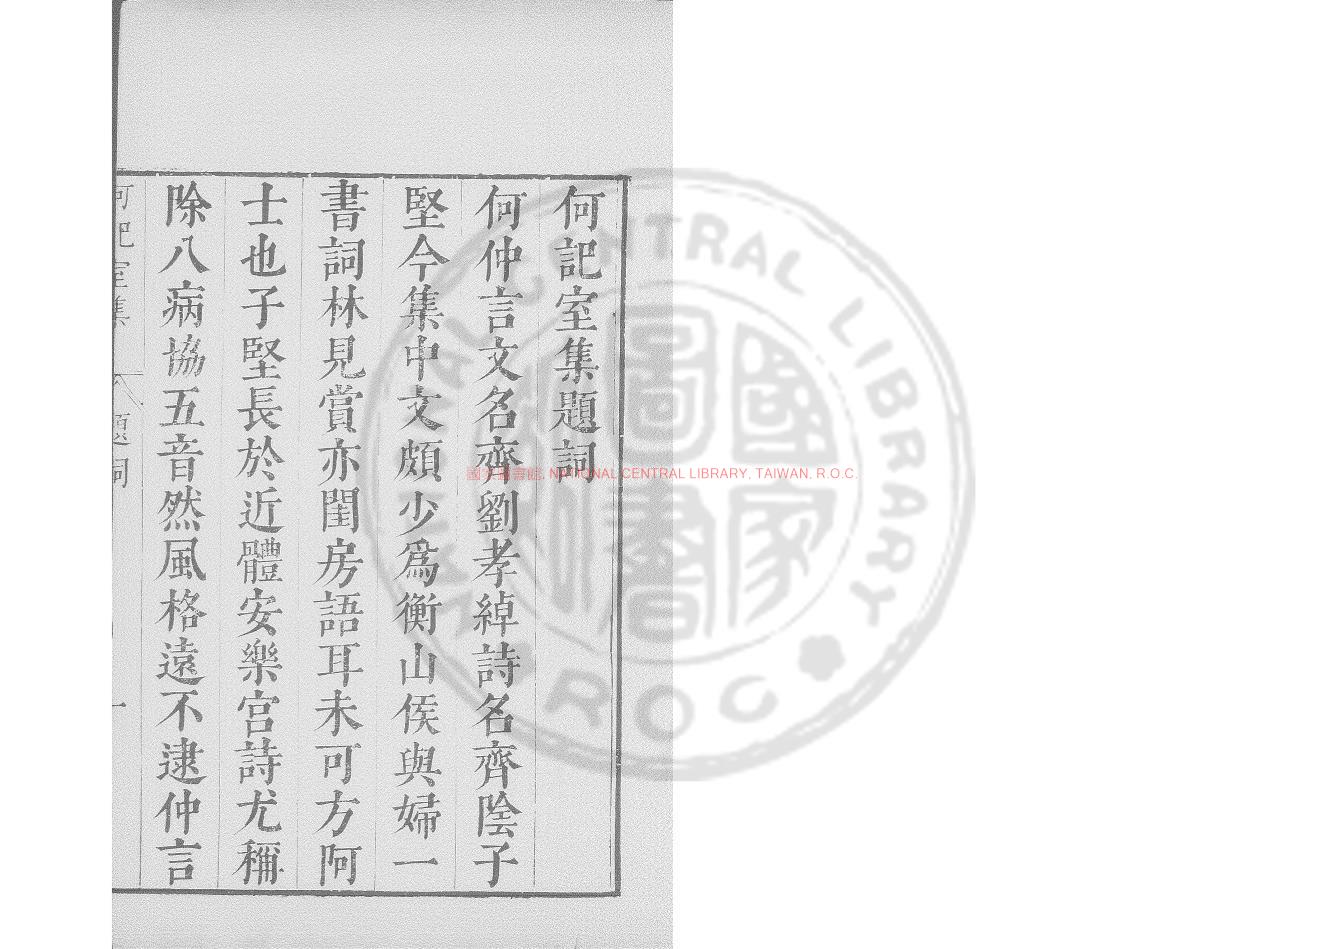 何記室集題詞
何仲言文名齊劉孝綽詩名齊陰子
堅今集中文頗少爲衡山侯與婦一
書詞林見賞亦閨房語耳未可方阿
士也子堅長於近體安樂宮詩尤稱
除八病協五音然風格遠不逮仲言
何記室集 題詞 一
國家圖書館, NATIONAL CENTRAL LIBRARY, TAIWAN, R.O.C.
NATIONAL CENTRAL LIBRARY
R O C
國家圖書